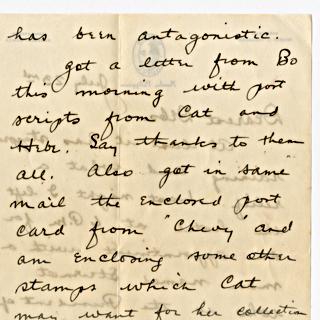 has been antagonistic.
got a letter from Bo
this morning with post
scripts from Cat and
Hibr. Say thanks to them
all. Also got in same
mail the enclosed post
card from "Chevy" and
am enclosing some other
stamps which Cat
may want for her collection